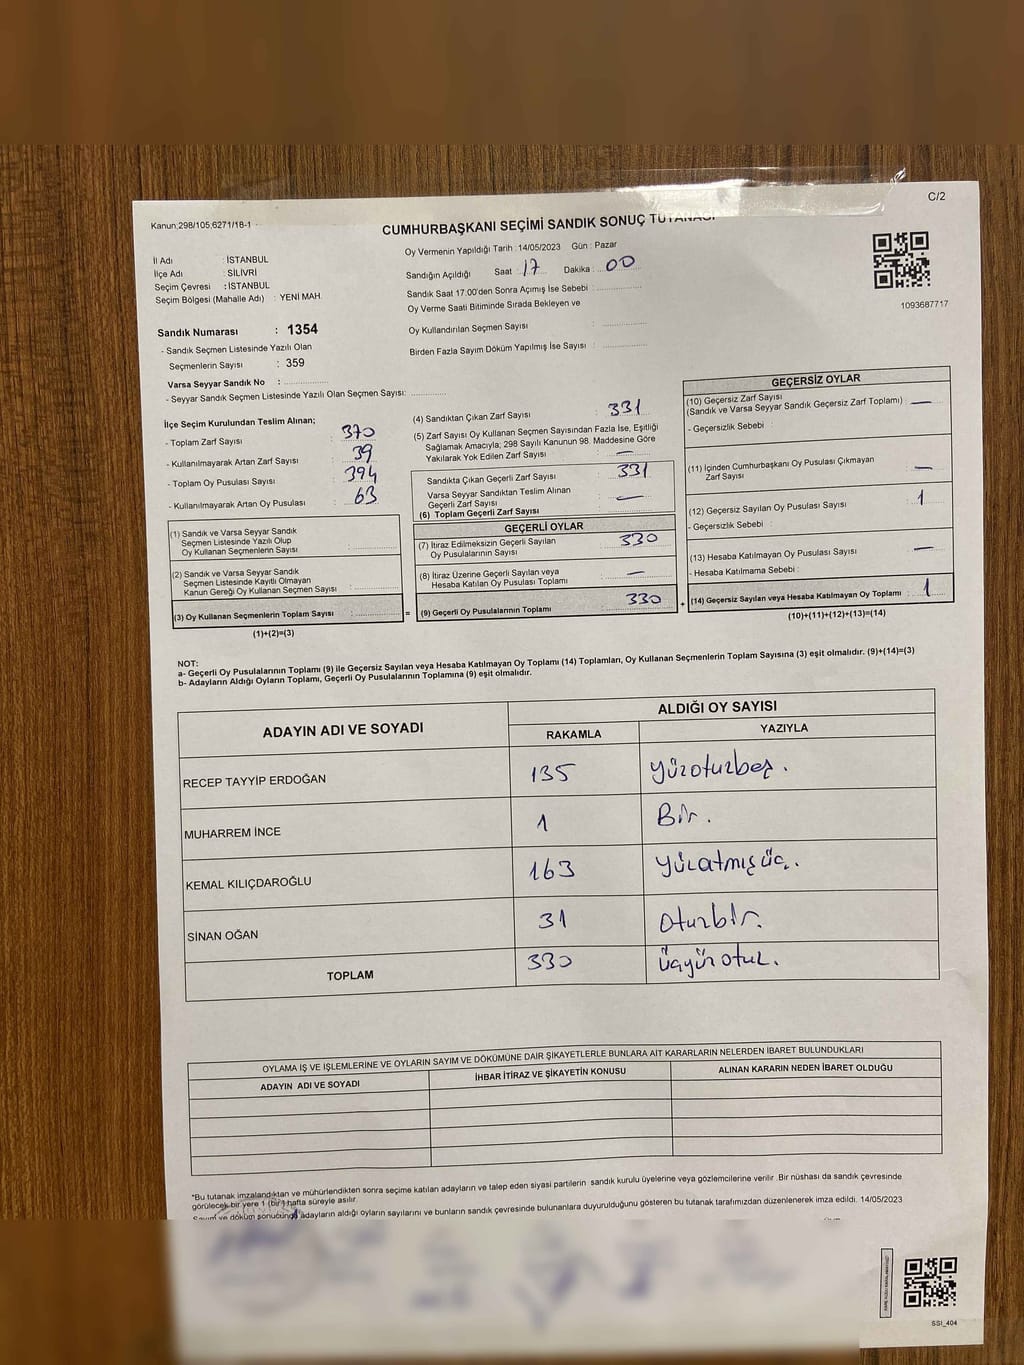 C/2
Kanun:298/105,6271/18-1
CUMHURBAŞKANI SEÇİMİ SANDIK SONUÇ TUTANAĞI
İl Adı : İSTANBUL
İlçe Adı : SİLİVRİ
Seçim Çevresi : İSTANBUL
Seçim Bölgesi (Mahalle Adı) : YENİ MAH.
Oy Vermenin Yapıldığı Tarih : 14/05/2023 Gün : Pazar
Sandığın Açıldığı Saat 17 Dakika : 00
Sandık Saat 17:00'den Sonra Açımış İse Sebebi :
Oy Verme Saati Bitiminde Sırada Bekleyen ve
Oy Kullandırılan Seçmen Sayısı :
Birden Fazla Sayım Döküm Yapılmış İse Sayısı :
1093687717
Sandık Numarası : 1354
- Sandık Seçmen Listesinde Yazılı Olan
Seçmenlerin Sayısı : 359
Varsa Seyyar Sandık No :
- Seyyar Sandık Seçmen Listesinde Yazılı Olan Seçmen Sayısı:
İlçe Seçim Kurulundan Teslim Alınan;
- Toplam Zarf Sayısı : 370
- Kullanılmayarak Artan Zarf Sayısı : 39
- Toplam Oy Pusulası Sayısı : 394
- Kullanılmayarak Artan Oy Pusulası : 63
(1) Sandık ve Varsa Seyyar Sandık
Seçmen Listesinde Yazılı Olup
Oy Kullanan Seçmenlerin Sayısı :
(2) Sandık ve Varsa Seyyar Sandık
Seçmen Listesinde Kayıtlı Olmayan
Kanun Gereği Oy Kullanan Seçmen Sayısı :
(3) Oy Kullanan Seçmenlerin Toplam Sayısı :
(1)+(2)=(3)
(4) Sandıktan Çıkan Zarf Sayısı : 331
(5) Zarf Sayısı Oy Kullanan Seçmen Sayısından Fazla İse, Eşitliği
Sağlamak Amacıyla; 298 Sayılı Kanunun 98. Maddesine Göre
Yakılarak Yok Edilen Zarf Sayısı : —
Sandıkta Çıkan Geçerli Zarf Sayısı : 331
Varsa Seyyar Sandıktan Teslim Alınan
Geçerli Zarf Sayısı : —
(6) Toplam Geçerli Zarf Sayısı :
GEÇERLİ OYLAR
(7) İtiraz Edilmeksizin Geçerli Sayılan
Oy Pusulalarının Sayısı : 330
(8) İtiraz Üzerine Geçerli Sayılan veya
Hesaba Katılan Oy Pusulası Toplamı : —
= (9) Geçerli Oy Pusulalarının Toplamı : 330
GEÇERSİZ OYLAR
(10) Geçersiz Zarf Sayısı
(Sandık ve Varsa Seyyar Sandık Geçersiz Zarf Toplamı) : —
- Geçersizlik Sebebi :
(11) İçinden Cumhurbaşkanı Oy Pusulası Çıkmayan
Zarf Sayısı : —
(12) Geçersiz Sayılan Oy Pusulası Sayısı : 1
- Geçersizlik Sebebi :
(13) Hesaba Katılmayan Oy Pusulası Sayısı : —
- Hesaba Katılmama Sebebi :
+ (14) Geçersiz Sayılan veya Hesaba Katılmayan Oy Toplamı : 1
(10)+(11)+(12)+(13)=(14)
NOT:
a- Geçerli Oy Pusulalarının Toplamı (9) ile Geçersiz Sayılan veya Hesaba Katılmayan Oy Toplamı (14) Toplamları, Oy Kullanan Seçmenlerin Toplam Sayısına (3) eşit olmalıdır. (9)+(14)=(3)
b- Adayların Aldığı Oyların Toplamı, Geçerli Oy Pusulalarının Toplamına (9) eşit olmalıdır.
ADAYIN ADI VE SOYADI
ALDIĞI OY SAYISI
RAKAMLA YAZIYLA
RECEP TAYYİP ERDOĞAN 135 Yüzoturbeş.
MUHARREM İNCE 1 Bir.
KEMAL KILIÇDAROĞLU 163 Yüzatmışüç.
SİNAN OĞAN 31 Oturbir.
TOPLAM 330 üçyüzotuz.
OYLAMA İŞ VE İŞLEMLERİNE VE OYLARIN SAYIM VE DÖKÜMÜNE DAİR ŞİKAYETLERLE BUNLARA AİT KARARLARIN NELERDEN İBARET BULUNDUKLARI
ADAYIN ADI VE SOYADI İHBAR İTİRAZ VE ŞİKAYETİN KONUSU ALINAN KARARIN NEDEN İBARET OLDUĞU
*Bu tutanak imzalandıktan ve mühürlendikten sonra seçime katılan adayların ve talep eden siyasi partilerin sandık kurulu üyelerine veya gözlemcilerine verilir .Bir nüshası da sandık çevresinde
görülecek bir yere 1 (bir) hafta süreyle asılır.
Sayım ve döküm sonucunda adayların aldığı oyların sayılarını ve bunların sandık çevresinde bulunanlara duyurulduğunu gösteren bu tutanak tarafımızdan düzenlenerek imza edildi. 14/05/2023
SSI_404